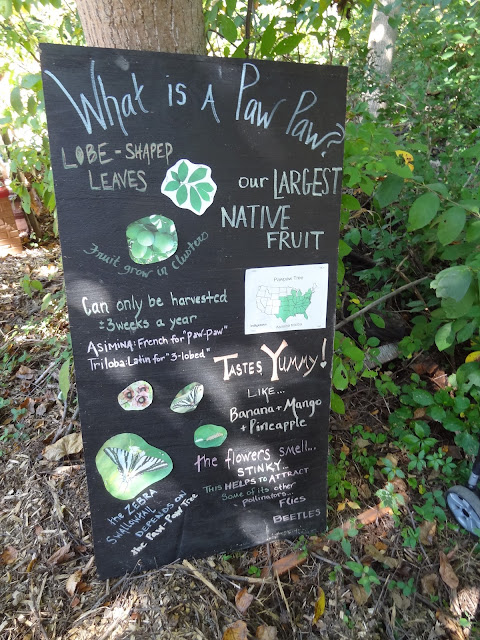 What is A Paw Paw?
LOBE-SHAPED
LEAVES
our LARGEST
NATIVE
FRUIT
Fruit grow in clusters
Pawpaw Tree
Can only be harvested
±3weeks a year
ASIMINA: French for "paw-paw"
Triloba: Latin for "3-lobed"
TASTES YUMMY!
LIKE...
Banana + Mango
+ Pineapple
the flowers smell...
STINKY...
THIS HELPS to ATTRACT
Some of its other
pollinators...
FLIES
BEETLES
the ZEBRA
SWallowtail
DEPENDS ON
the Paw Paw Tree